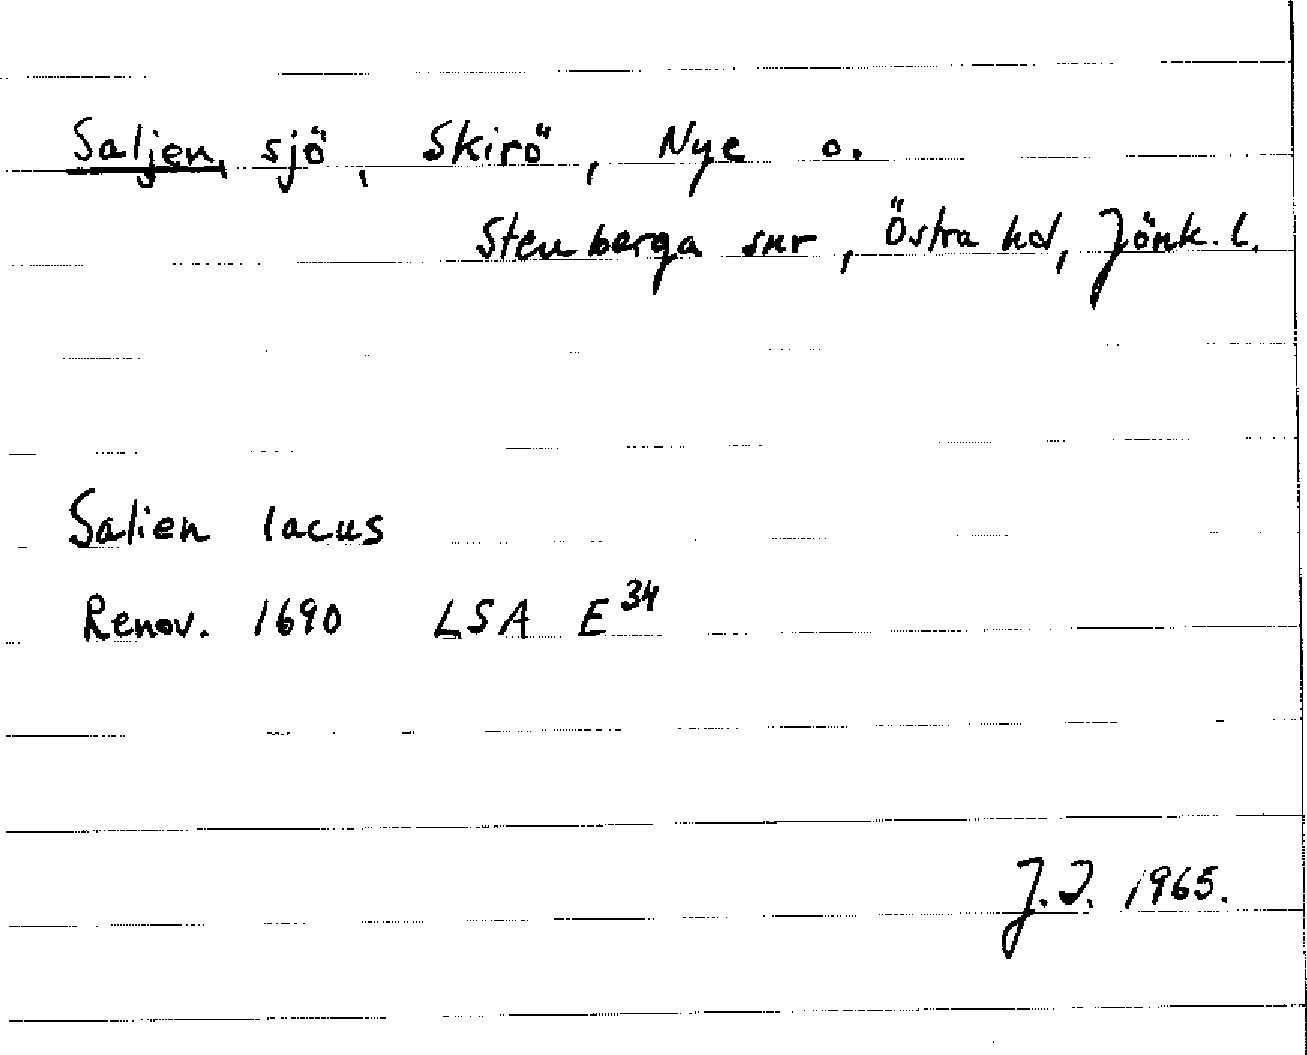 Saljen, sjö, Skirö, Nye o.
Stenberga snr, Östra hd, Jönk. l.
Salien lacus
Renov. 1690 LSA E³⁴
J.I. 1965.